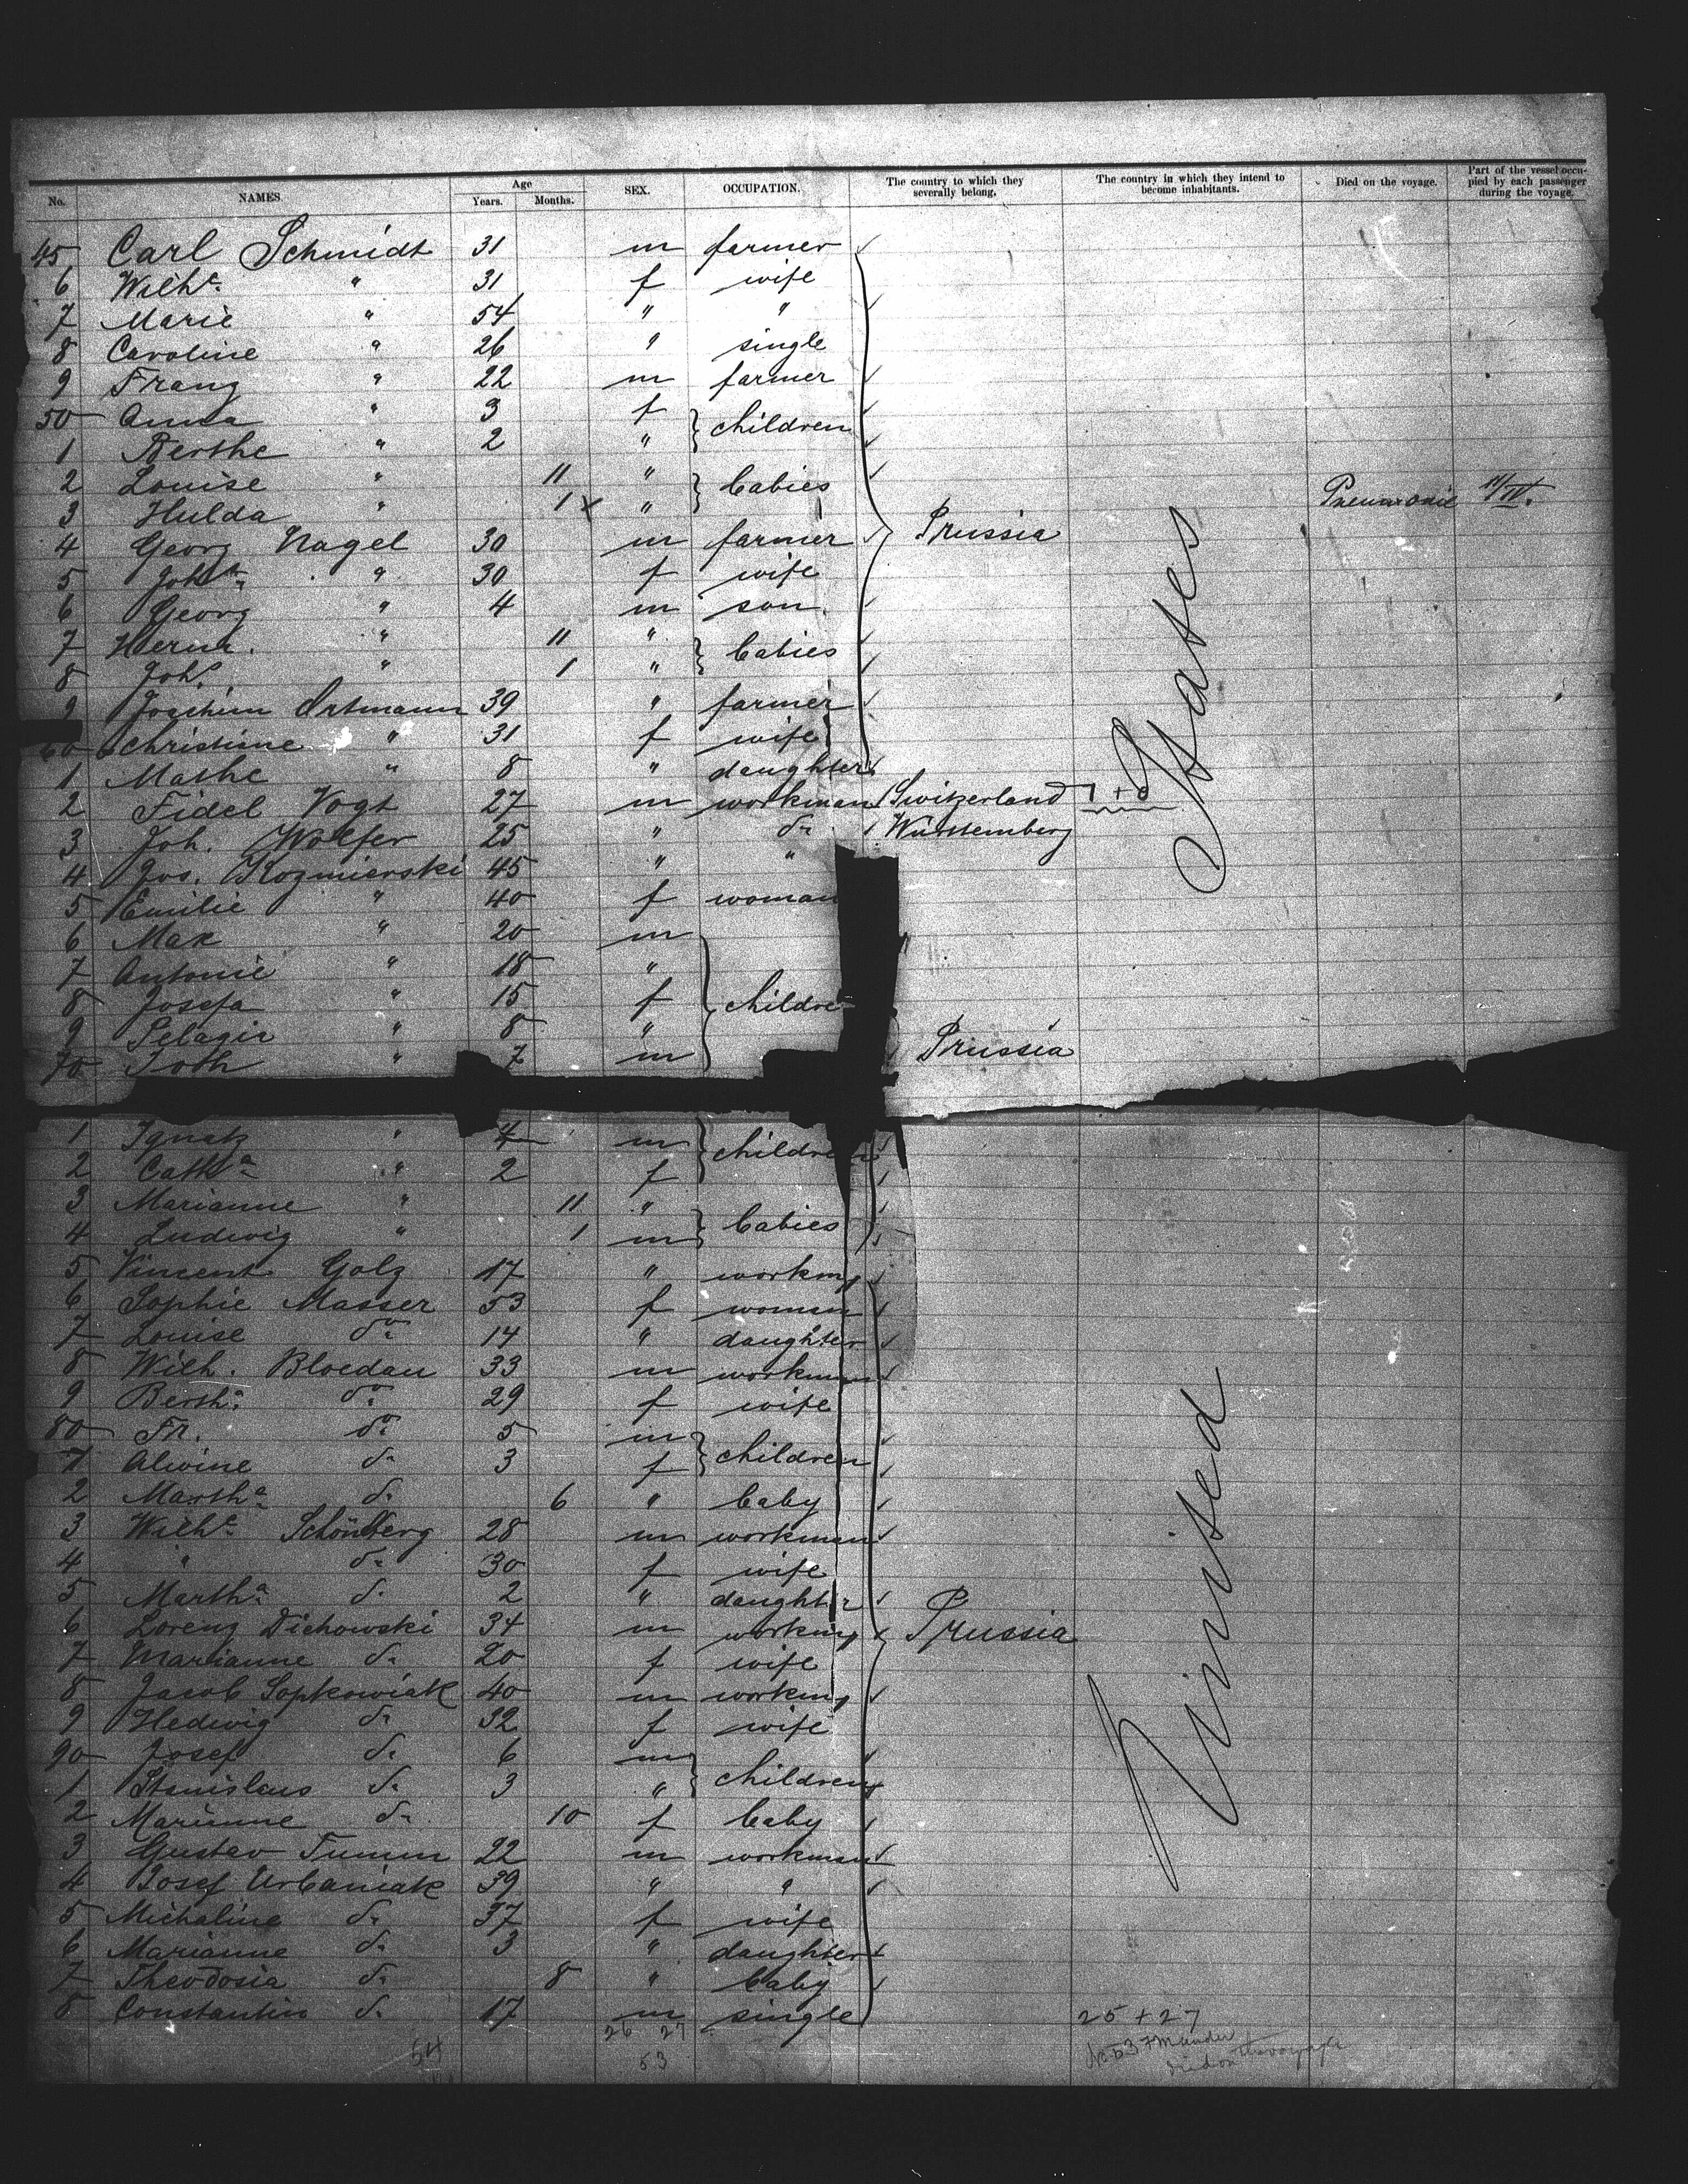 No. NAMES Age Years. Months. SEX. OCCUPATION. The country to which they severally belong. The country in which they intend to become inhabitants. Died on the voyage. Part of the vessel occupied by each passenger during the voyage.
45 Carl Schmidt 31 m farmer
6 Wilhe. " 31 f wife
7 Marie " 54 " "
8 Caroline " 26 " single
9 Franz " 22 m farmer
50 Anna " 3 f children
1 Berthe " 2 "
2 Louise " 11 " babies
3 Hulda " 1 x " Pneumonie 11/IV.
4 Georg Nagel 30 m farmer Prussia
5 Joha. " 30 f wife
6 Georg " 4 m son
7 Herm. " 11 " babies
8 Johs. " 1 "
9 Joachim Ortmann 39 " farmer
60 Christine " 31 f wife
1 Mathe " 8 " daughter
2 Fidel Vogt 27 m workman Switzerland
3 Joh. Wolfer 25 " do. Württemberg
4 Jos. Kozmierski 45 " "
5 Emilie " 40 f woman
6 Max " 20 m
7 Antonie " 18 "
8 Josefa " 15 f childre
9 Pelagie " 8 "
70 Joth " 7 m Prussia
1 Ignatz " 4 m children
2 Catha " 2 f
3 Marianne " 11 "
4 Ludwig " 1 m babies
5 Vincent Golz 17 " working
6 Sophie Masser 53 f woman
7 Louise do. 14 " daughter
8 Wilh. Bloedau 33 m workman
9 Bertha. do. 29 f wife
80 Fr. do. 5 m children
1 Alwine do. 3 f
2 Martha. do. 6 " baby
3 Wilhe. Schönberg 28 m workman
4 " do. 30 f wife
5 Martha. do. 2 " daughter
6 Lorenz Dichowski 34 m working Prussia
7 Marianne do. 20 f wife
8 Jacob Sopkowiak 40 m working
9 Hedwig do. 32 f wife
90 Josef do. 6 m children
1 Stanislaus do. 3 "
2 Marianne do. 10 f baby
3 Gustav Tumm 22 m workman
4 Josef Urbaniak 39 " "
5 Michaline do. 37 f wife
6 Marianne do. 3 " daughter
7 Theodosia do. 8 " baby
8 Constantin do. 17 m single
United States
26 27 25 + 27
54 53
died on the voyage